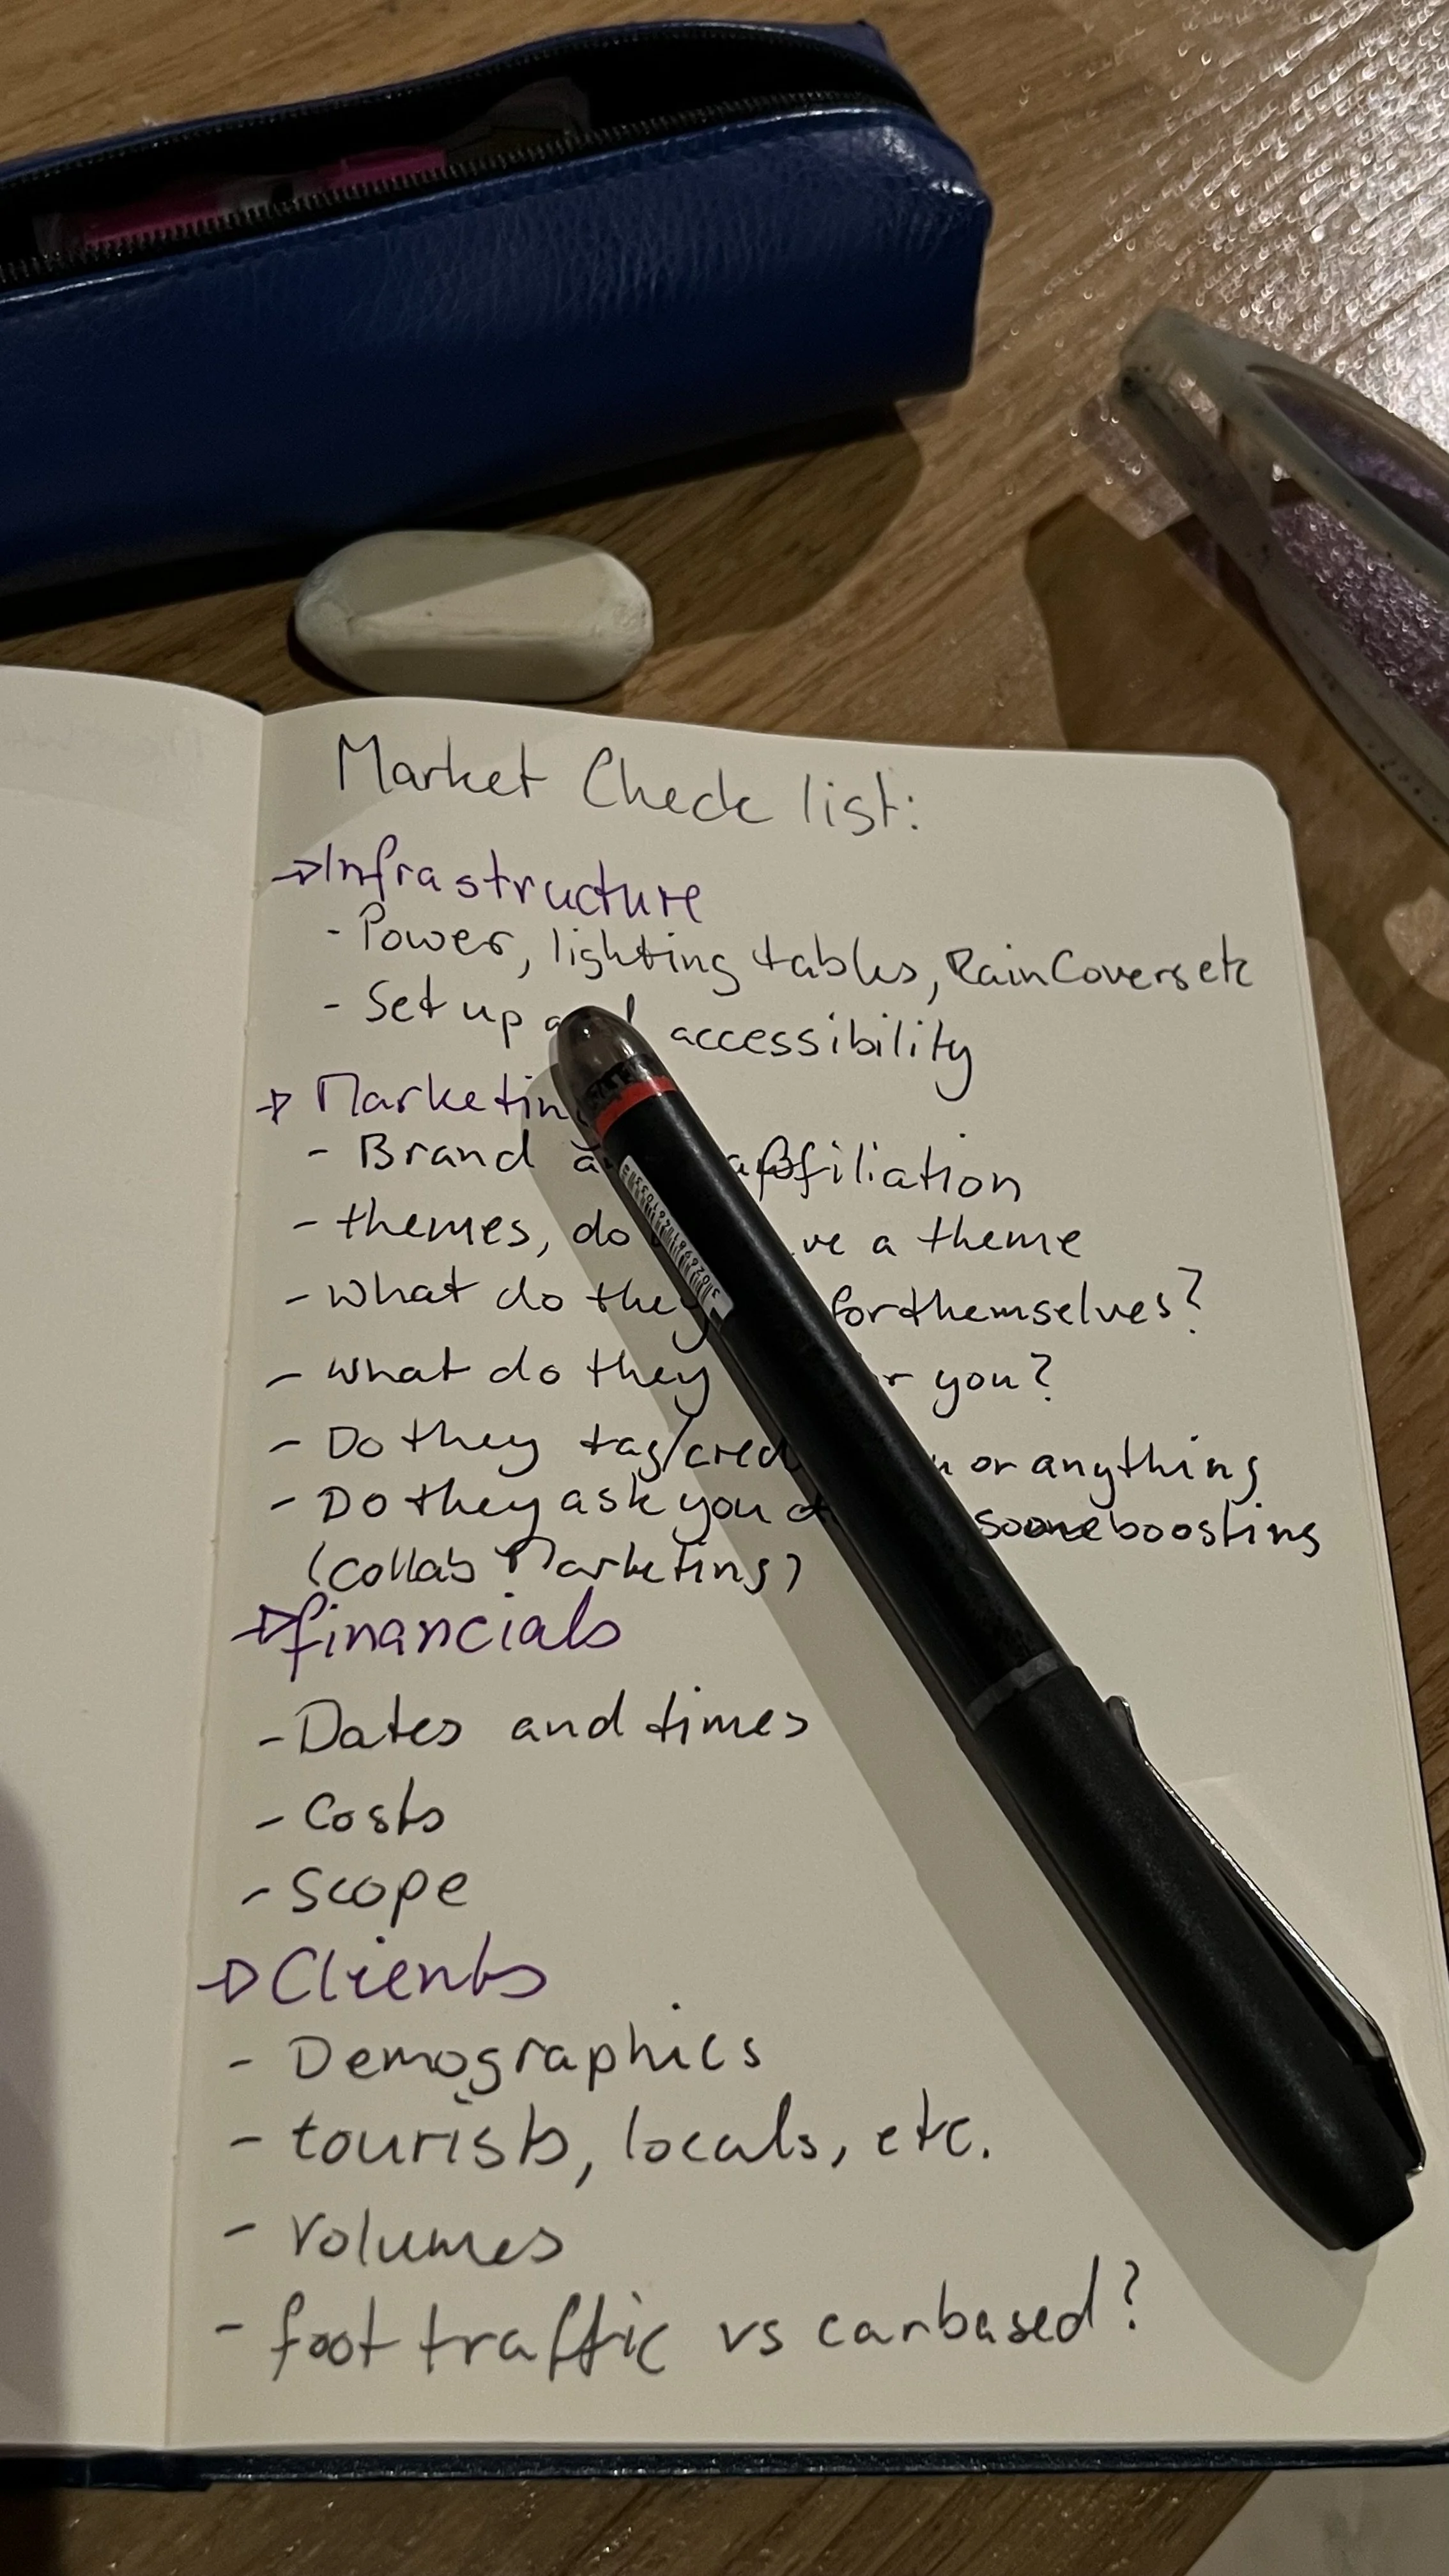 Market Check list:
→Infrastructure
- Power, lighting tables, Rain Covers etc
- Set up accessibility
→ Marketing
- Brand affiliation
- themes, do a theme
- What do they for themselves?
- what do they you?
- Do they tag/ or anything
- Do they ask you boosting
(collab Marketing)
→financials
- Dates and times
- Costs
- Scope
→Clients
- Demographics
- tourists, locals, etc.
- Volumes
- foot traffic vs carbased?